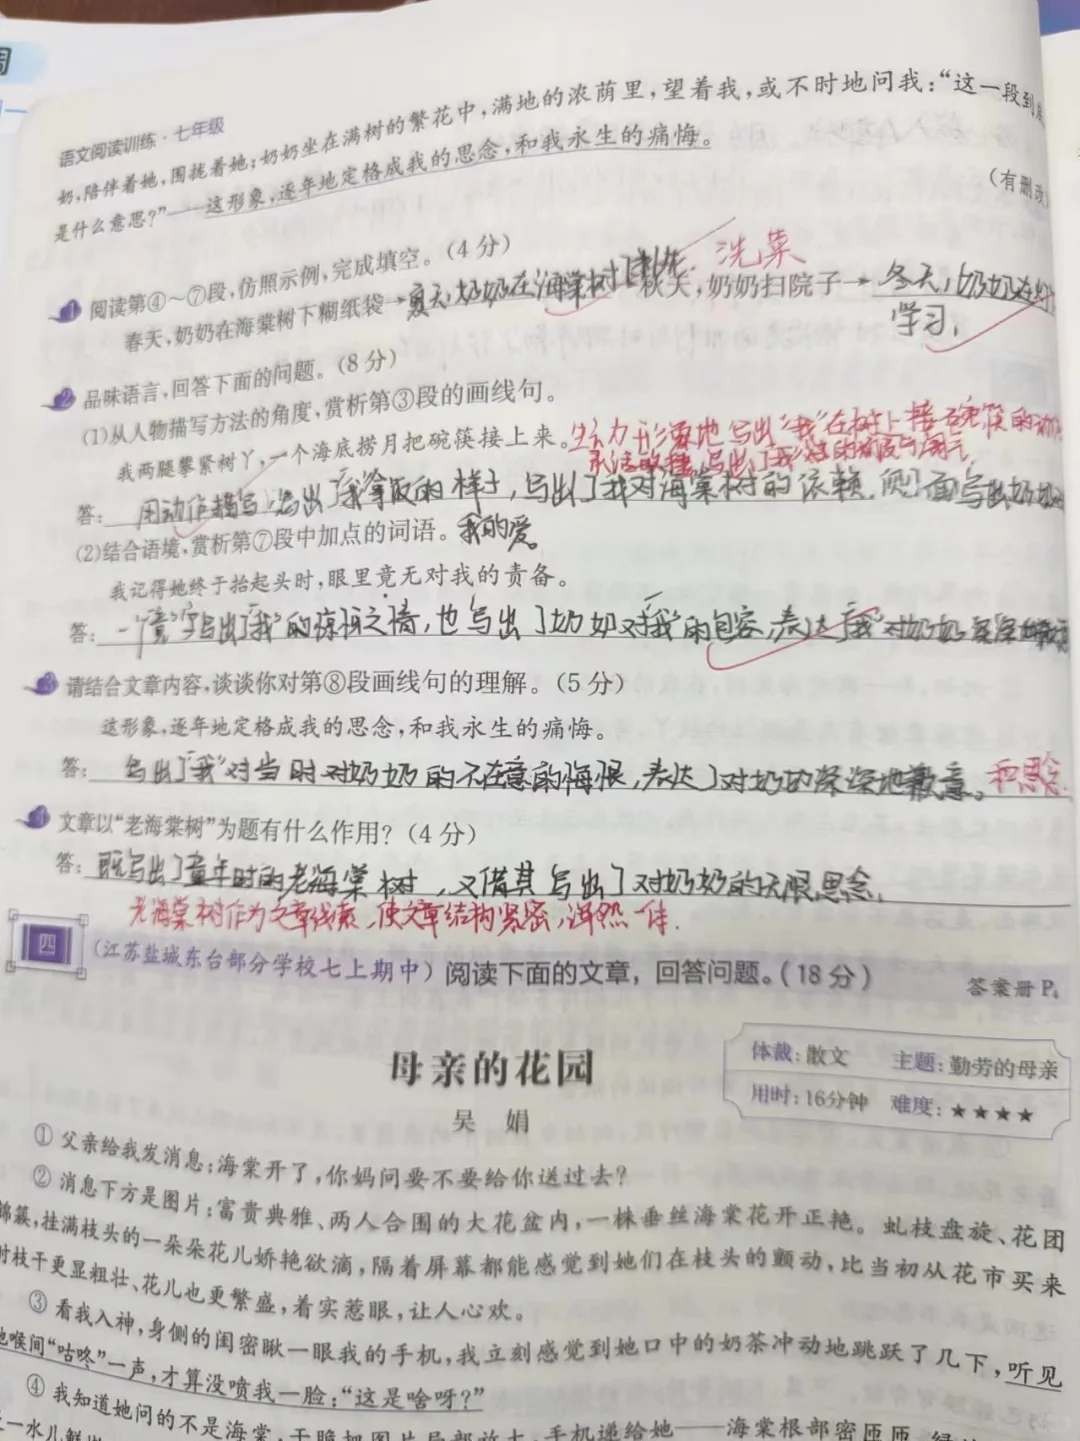 周
语文阅读训练·七年级
奶,陪伴着她,围拢着她;奶奶坐在满树的繁花中,满地的浓荫里,望着我,或不时地问我:“这一段到底
是什么意思?”——这形象,逐年地定格成我的思念,和我永生的痛悔。
(有删改)
1 阅读第④~⑦段,仿照示例,完成填空。(4分)
洗菜
春天,奶奶在海棠树下糊纸袋→夏天,奶奶在海棠树下 秋天,奶奶扫院子→冬天,奶奶在
学习,
2 品味语言,回答下面的问题。(8分)
(1)从人物描写方法的角度,赏析第③段的画线句。
我两腿攀紧树丫,一个海底捞月把碗筷接上来。生动形象地写出“我”在树上接碗筷的动作
写出了“我”
答: 用动作描写,写出了“我”拿饭的样子,写出了我对海棠树的依赖,侧面写出奶奶对
我的爱。
(2)结合语境,赏析第⑦段中加点的词语。
我记得她终于抬起头时,眼里竟无对我的责备。
答: 一个“竟”字写出了“我”的惊讶之情,也写出了奶奶对“我”的包容,表达了“我”对奶奶深深地歉意
3 请结合文章内容,谈谈你对第⑧段画线句的理解。(5分)
这形象,逐年地定格成我的思念,和我永生的痛悔。
答: 写出了“我”对当时对奶奶的不在意的悔恨,表达了对奶奶深深地歉意。和思念.
4 文章以“老海棠树”为题有什么作用?(4分)
答: 既写出了童年时的老海棠树,又借其写出了对奶奶的无限思念.
老海棠树作为文章线索,使文章结构紧密,浑然一体.
四 (江苏盐城东台部分学校七上期中)阅读下面的文章,回答问题。(18分)
答案册 P₄
母亲的花园
吴 娟
体裁:散文 主题:勤劳的母亲
用时:16分钟 难度:★★★★
① 父亲给我发消息:海棠开了,你妈问要不要给你送过去?
② 消息下方是图片:富贵典雅、两人合围的大花盆内,一株垂丝海棠花开正艳。虬枝盘旋、花团
锦簇,挂满枝头的一朵朵花儿娇艳欲滴,隔着屏幕都能感觉到她们在枝头的颤动,比当初从花市买来
时枝干更显粗壮、花儿也更繁盛,着实惹眼,让人心欢。
③ 看我入神,身侧的闺密瞅一眼我的手机,我立刻感觉到她口中的奶茶冲动地跳跃了几下,听见
她喉间“咕咚”一声,才算没喷我一脸:“这是啥呀?”
④ 我知道她问的不是海棠,干脆把图片局部放大,手机递给她——海棠根部密匝匝、